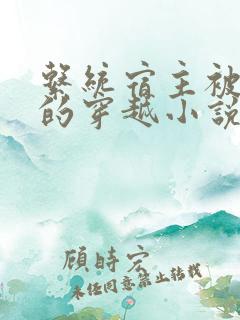 繫統宿主被
的穿越小説
顾時宏
未经同意禁止转载